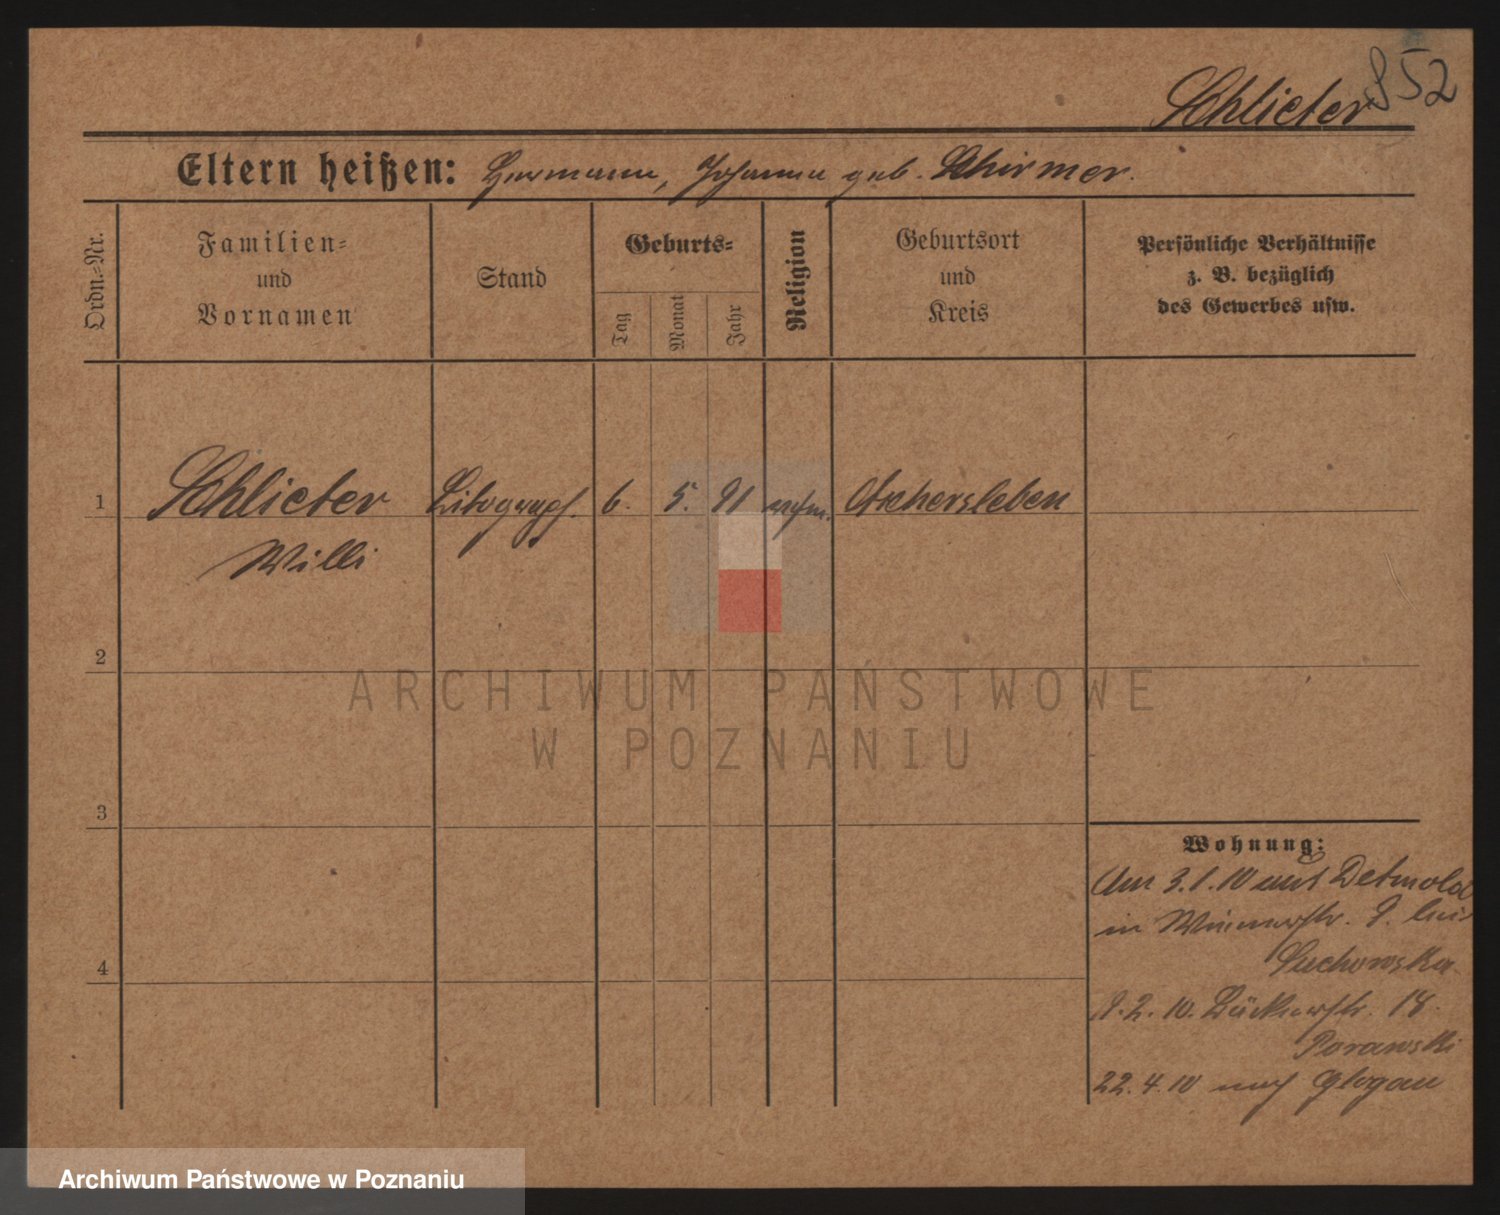 Schlieter
852
Eltern heißen: Hermann, Johanna geb. Schirmer.
Ordn.-Nr.
Familien-
und
Vornamen
Stand
Geburts-
Tag
Monat
Jahr
Religion
Geburtsort
und
Kreis
Persönliche Verhältnisse
z. B. bezüglich
des Gewerbes usw.
1 Schlieter Litograph. 6. 5. 91 Aschersleben
Willi
2
3
4
Wohnung:
Am 3.1.10 aus Detmold
in bei
Suchowska
10. 18.
Porawski
22.4.10 nach Glogau
ARCHIWUM PAŃSTWOWE
W POZNANIU
Archiwum Państwowe w Poznaniu